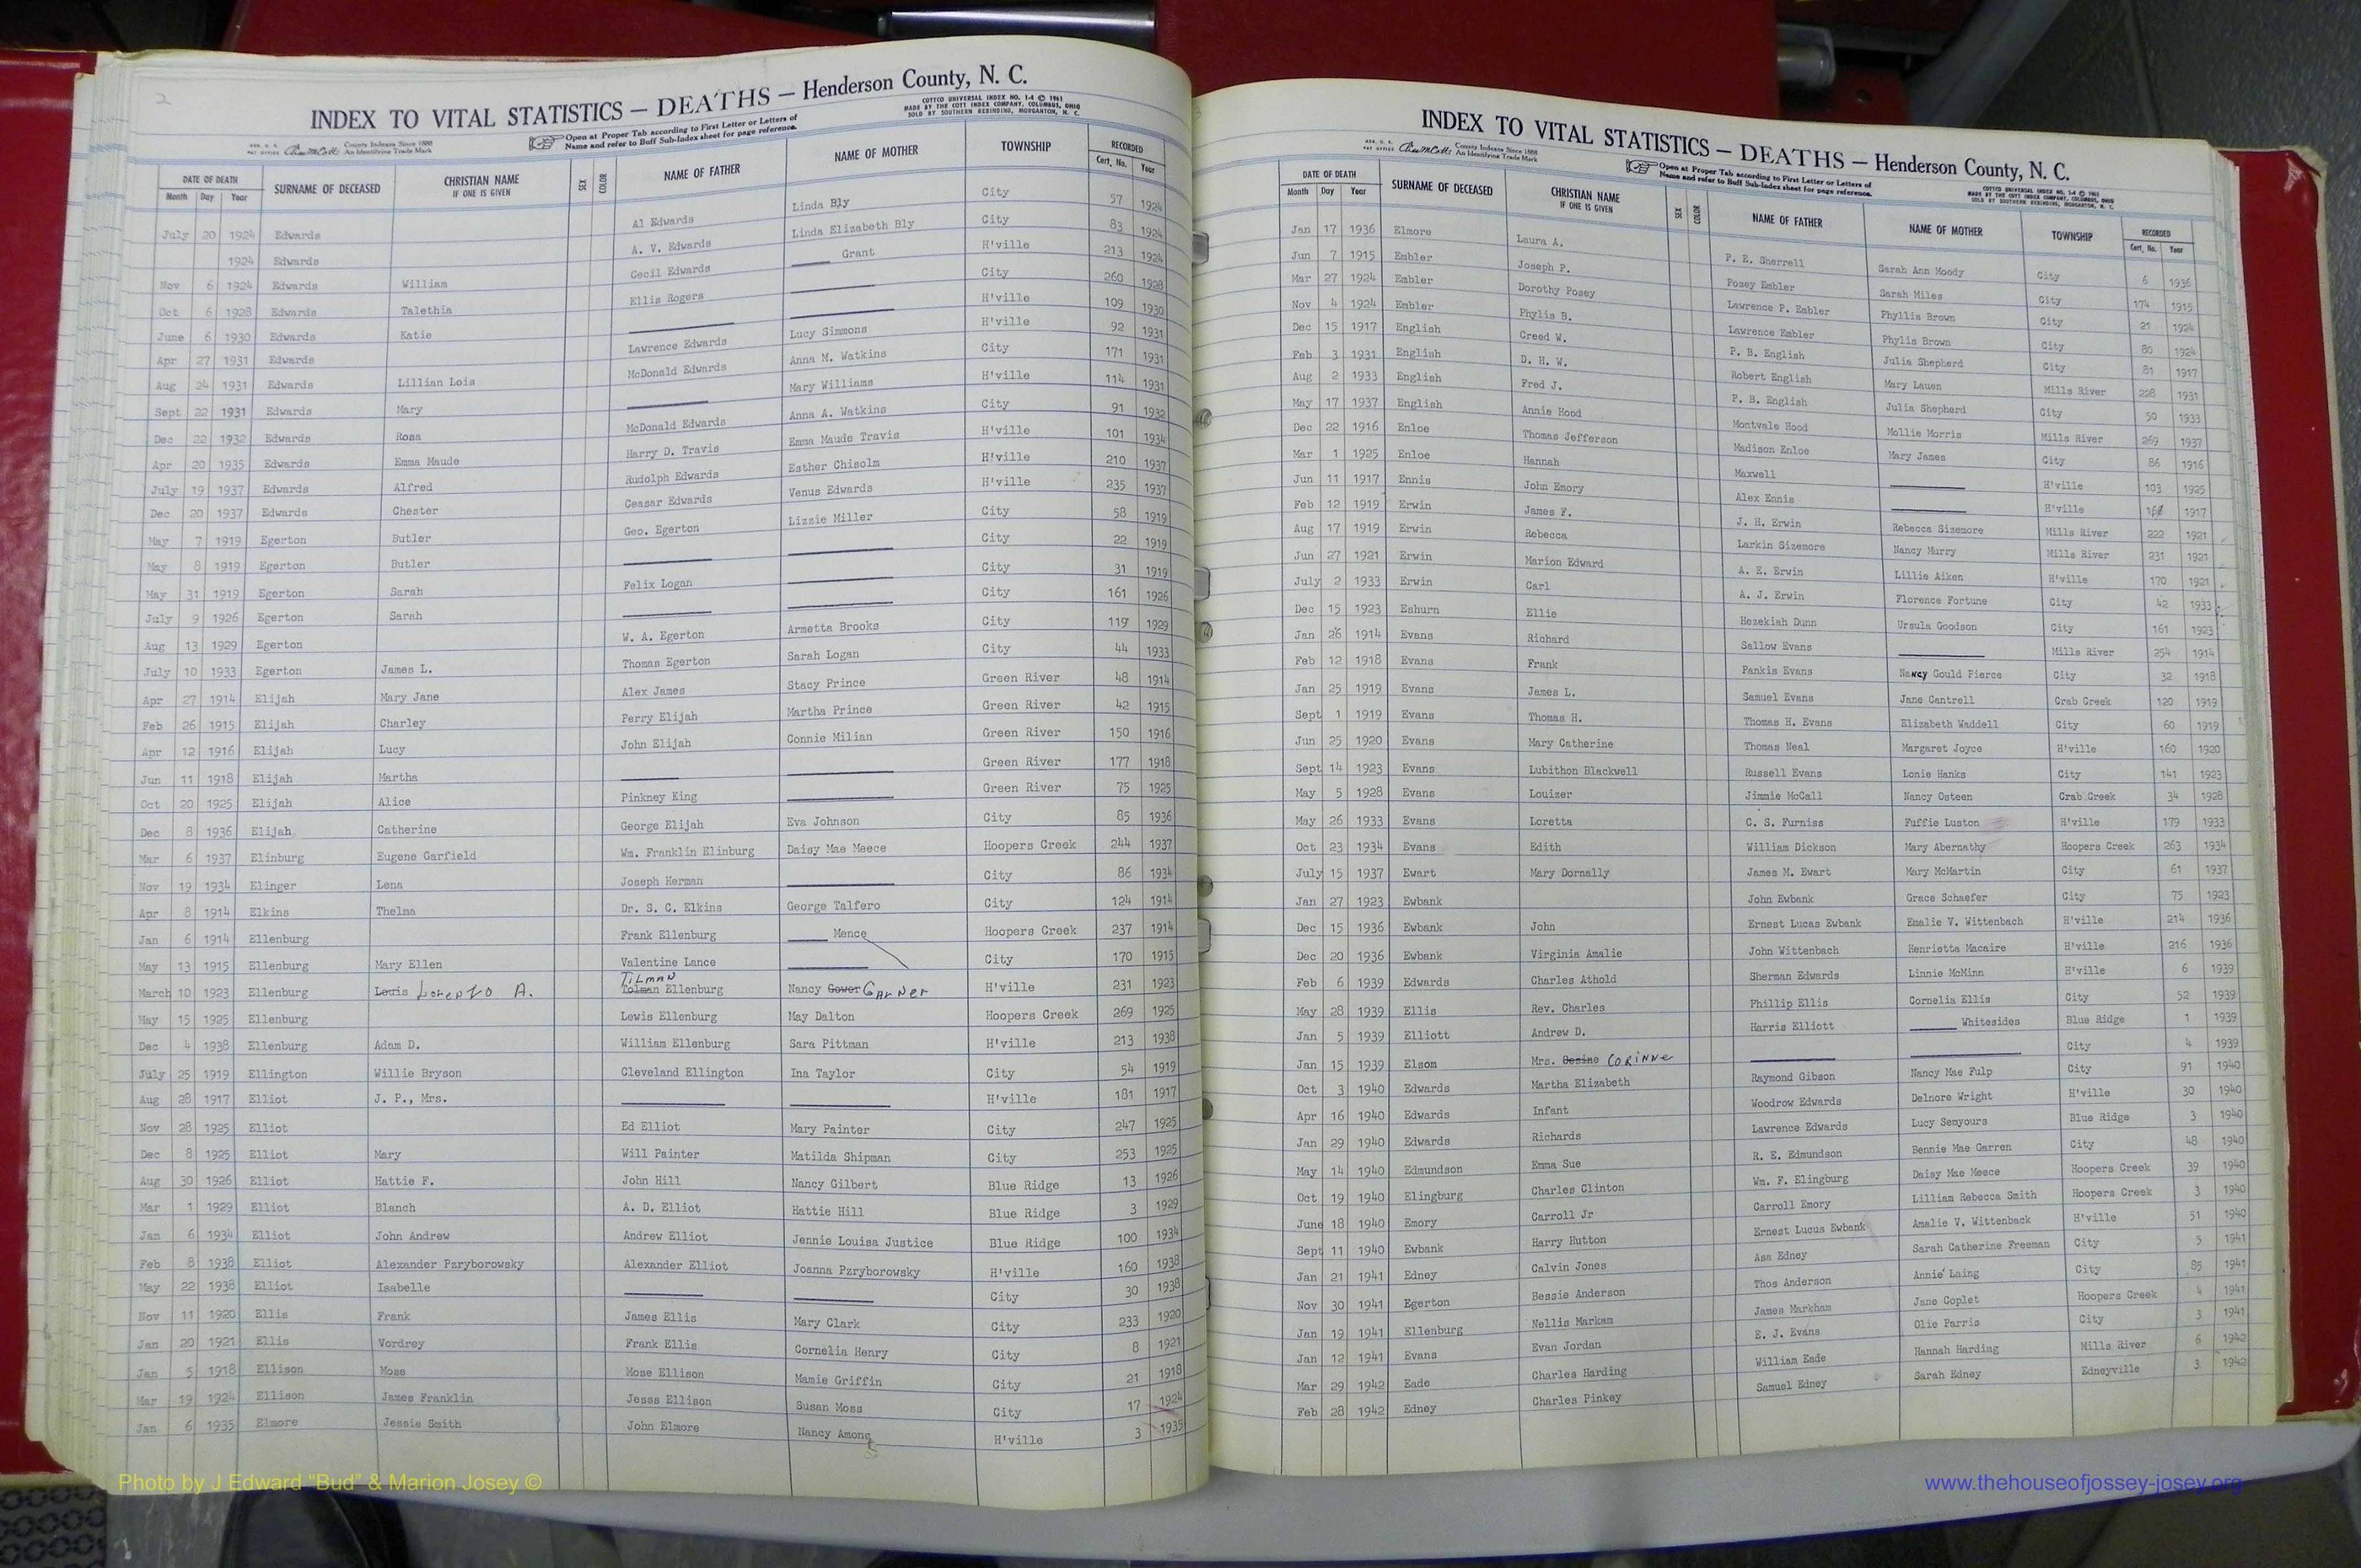 2
INDEX TO VITAL STATISTICS — DEATHS — Henderson County, N. C.
COTTCO UNIVERSAL INDEX NO. 1-4 © 1961
MADE BY THE COTT INDEX COMPANY, COLUMBUS, OHIO
SOLD BY SOUTHERN REBINDING, MORGANTON, N. C.
Open at Proper Tab according to First Letter or Letters of
Name and refer to Buff Sub-Index sheet for page reference.
County Indexes Since 1888
An Identifying Trade Mark
DATE OF DEATH SURNAME OF DECEASED CHRISTIAN NAME IF ONE IS GIVEN SEX COLOR NAME OF FATHER NAME OF MOTHER TOWNSHIP RECORDED
Month Day Year Cert. No. Year
July 20 1924 Edwards Al Edwards Linda Bly City 57 1924
1924 Edwards A. V. Edwards Linda Elizabeth Bly City 83 1924
Nov 6 1924 Edwards William Cecil Edwards Grant H'ville 213 1924
Oct 6 1928 Edwards Talethia Ellis Rogers City 260 1928
June 6 1930 Edwards Katie H'ville 109 1930
Apr 27 1931 Edwards Lawrence Edwards Lucy Simmons H'ville 92 1931
Aug 24 1931 Edwards Lillian Lois McDonald Edwards Anna M. Watkins City 171 1931
Sept 22 1931 Edwards Mary Mary Williams H'ville 114 1931
Dec 22 1932 Edwards Rosa McDonald Edwards Anna A. Watkins City 91 1932
Apr 20 1935 Edwards Emma Maude Harry D. Travis Emma Maude Travis H'ville 101 1934
July 19 1937 Edwards Alfred Rudolph Edwards Esther Chisolm H'ville 210 1937
Dec 20 1937 Edwards Chester Ceasar Edwards Venus Edwards H'ville 235 1937
May 7 1919 Egerton Butler Geo. Egerton Lizzie Miller City 58 1919
May 8 1919 Egerton Butler City 22 1919
May 31 1919 Egerton Sarah Felix Logan City 31 1919
July 9 1926 Egerton Sarah City 161 1926
Aug 13 1929 Egerton W. A. Egerton Armetta Brooks City 119 1929
July 10 1933 Egerton James L. Thomas Egerton Sarah Logan City 44 1933
Apr 27 1914 Elijah Mary Jane Alex James Stacy Prince Green River 48 1914
Feb 26 1915 Elijah Charley Perry Elijah Martha Prince Green River 42 1915
Apr 12 1916 Elijah Lucy John Elijah Connie Milian Green River 150 1916
Jun 11 1918 Elijah Martha Green River 177 1918
Oct 20 1925 Elijah Alice Pinkney King Green River 75 1925
Dec 8 1936 Elijah Catherine George Elijah Eva Johnson City 85 1936
Mar 6 1937 Elinburg Eugene Garfield Wm. Franklin Elinburg Daisy Mae Meece Hoopers Creek 244 1937
Nov 19 1934 Elinger Lena Joseph Herman City 86 1934
Apr 8 1914 Elkins Thelma Dr. S. C. Elkins George Talfero City 124 1914
Jan 6 1914 Ellenburg Frank Ellenburg Mence Hoopers Creek 237 1914
May 13 1915 Ellenburg Mary Ellen Valentine Lance City 170 1915
March 10 1923 Ellenburg Louis Lorenzo A. Tolman TILMAN Ellenburg Nancy Gower GArNer H'ville 231 1923
May 15 1925 Ellenburg Lewis Ellenburg May Dalton Hoopers Creek 269 1925
Dec 4 1938 Ellenburg Adam D. William Ellenburg Sara Pittman H'ville 213 1938
July 25 1919 Ellington Willie Bryson Cleveland Ellington Ina Taylor City 54 1919
Aug 28 1917 Elliot J. P., Mrs. H'ville 181 1917
Nov 28 1925 Elliot Ed Elliot Mary Painter City 247 1925
Dec 8 1925 Elliot Mary Will Painter Matilda Shipman City 253 1925
Aug 30 1926 Elliot Hattie F. John Hill Nancy Gilbert Blue Ridge 13 1926
Mar 1 1929 Elliot Blanch A. D. Elliot Hattie Hill Blue Ridge 3 1929
Jan 6 1934 Elliot John Andrew Andrew Elliot Jennie Louisa Justice Blue Ridge 100 1934
Feb 8 1938 Elliot Alexander Pzryborowsky Alexander Elliot Joanna Pzryborowsky H'ville 160 1938
May 22 1938 Elliot Isabelle City 30 1938
Nov 11 1920 Ellis Frank James Ellis Mary Clark City 233 1920
Jan 20 1921 Ellis Vordrey Frank Ellis Cornelia Henry City 8 1921
Jan 5 1918 Ellison Mose Mose Ellison Mamie Griffin City 21 1918
Mar 19 1924 Ellison James Franklin Jesss Ellison Susan Moss City 17 1924
Jan 6 1935 Elmore Jessie Smith John Elmore Nancy Among H'ville 3 1935
INDEX TO VITAL STATISTICS — DEATHS — Henderson County, N. C.
County Indexes Since 1888
An Identifying Trade Mark
Open at Proper Tab according to First Letter or Letters of
Name and refer to Buff Sub-Index sheet for page reference.
COTTCO UNIVERSAL INDEX NO. 1-4 © 1961
MADE BY THE COTT INDEX COMPANY, COLUMBUS, OHIO
SOLD BY SOUTHERN REBINDING, MORGANTON, N. C.
DATE OF DEATH SURNAME OF DECEASED CHRISTIAN NAME IF ONE IS GIVEN SEX COLOR NAME OF FATHER NAME OF MOTHER TOWNSHIP RECORDED
Month Day Year Cert. No. Year
Jan 17 1936 Elmore Laura A. P. E. Sherrell Sarah Ann Moody City 6 1936
Jun 7 1915 Embler Joseph P. Posey Embler Sarah Miles City 174 1915
Mar 27 1924 Embler Dorothy Posey Lawrence P. Embler Phyllis Brown City 21 1924
Nov 4 1924 Embler Phylis B. Lawrence Embler Phylis Brown City 80 1924
Dec 15 1917 English Creed W. P. B. English Julia Shepherd City 81 1917
Feb 3 1931 English D. H. W. Robert English Mary Lauen Mills River 228 1931
Aug 2 1933 English Fred J. P. B. English Julia Shepherd City 50 1933
May 17 1937 English Annie Hood Montvale Hood Mollie Morris Mills River 269 1937
Dec 22 1916 Enloe Thomas Jefferson Madison Enloe Mary James City 86 1916
Mar 1 1925 Enloe Hannah Maxwell H'ville 103 1925
Jun 11 1917 Ennis John Emory Alex Ennis H'ville 1917
Feb 12 1919 Erwin James F. J. H. Erwin Rebecca Sizemore Mills River 222 1921
Aug 17 1919 Erwin Rebecca Larkin Sizemore Nancy Murry Mills River 231 1921
Jun 27 1921 Erwin Marion Edward A. E. Erwin Lillie Aiken H'ville 170 1921
July 2 1933 Erwin Carl A. J. Erwin Florence Fortune City 42 1933
Dec 15 1923 Eshurn Ellie Hezekiah Dunn Ursula Goodson City 161 1923
Jan 26 1914 Evans Richard Sallow Evans Mills River 254 1914
Feb 12 1918 Evans Frank Pankis Evans Nancy Gould Pierce City 32 1918
Jan 25 1919 Evans James L. Samuel Evans Jane Cantrell Crab Creek 120 1919
Sept 1 1919 Evans Thomas H. Thomas H. Evans Elizabeth Waddell City 60 1919
Jun 25 1920 Evans Mary Catherine Thomas Neal Margaret Joyce H'ville 160 1920
Sept 14 1923 Evans Lubithon Blackwell Russell Evans Lonie Hanks City 141 1923
May 5 1928 Evans Louizer Jimmie McCall Nancy Osteen Crab Creek 34 1928
May 26 1933 Evans Loretta C. S. Furniss Fuffie Luston H'ville 179 1933
Oct 23 1934 Evans Edith William Dickson Mary Abernathy Hoopers Creek 263 1934
July 15 1937 Ewart Mary Dornally James M. Ewart Mary McMartin City 61 1937
Jan 27 1923 Ewbank John Ewbank Grace Schaefer City 75 1923
Dec 15 1936 Ewbank John Ernest Lucas Ewbank Emalie V. Wittenbach H'ville 214 1936
Dec 20 1936 Ewbank Virginia Amalie John Wittenbach Henrietta Macaire H'ville 216 1936
Feb 6 1939 Edwards Charles Athold Sherman Edwards Linnie McMinn H'ville 6 1939
May 28 1939 Ellis Rev. Charles Phillip Ellis Cornelia Ellis City 52 1939
Jan 5 1939 Elliott Andrew D. Harris Elliott Whitesides Blue Ridge 1 1939
Jan 15 1939 Elsom Mrs. Besine CORINNe City 4 1939
Oct 3 1940 Edwards Martha Elizabeth Raymond Gibson Nancy Mae Fulp City 91 1940
Apr 16 1940 Edwards Infant Woodrow Edwards Delnore Wright H'ville 30 1940
Jan 29 1940 Edwards Richards Lawrence Edwards Lucy Semyours Blue Ridge 3 1940
May 14 1940 Edmundson Emma Sue R. E. Edmundson Bennie Mae Garren City 48 1940
Oct 19 1940 Elingburg Charles Clinton Wm. F. Elingburg Daisy Mae Meece Hoopers Creek 39 1940
June 18 1940 Emory Carroll Jr Carroll Emory Lilliam Rebecca Smith Hoopers Creek 3 1940
Sept 11 1940 Ewbank Harry Hutton Ernest Lucus Ewbank Amalie V. Wittenback H'ville 51 1940
Jan 21 1941 Edney Calvin Jones Asa Edney Sarah Catherine Freeman City 5 1941
Nov 30 1941 Egerton Bessie Anderson Thos Anderson Annie Laing City 85 1941
Jan 19 1941 Ellenburg Nellis Markam James Markham Jane Coplet Hoopers Creek 4 1941
Jan 12 1941 Evans Evan Jordan E. J. Evans Olie Parris City 3 1941
Mar 29 1942 Eade Charles Harding William Eade Hannah Harding Mills River 6 1942
Feb 28 1942 Edney Charles Pinkey Samuel Edney Sarah Edney Edneyville 3 1942
Photo by J Edward “Bud” & Marion Josey ©
www.thehouseofjossey-josey.org